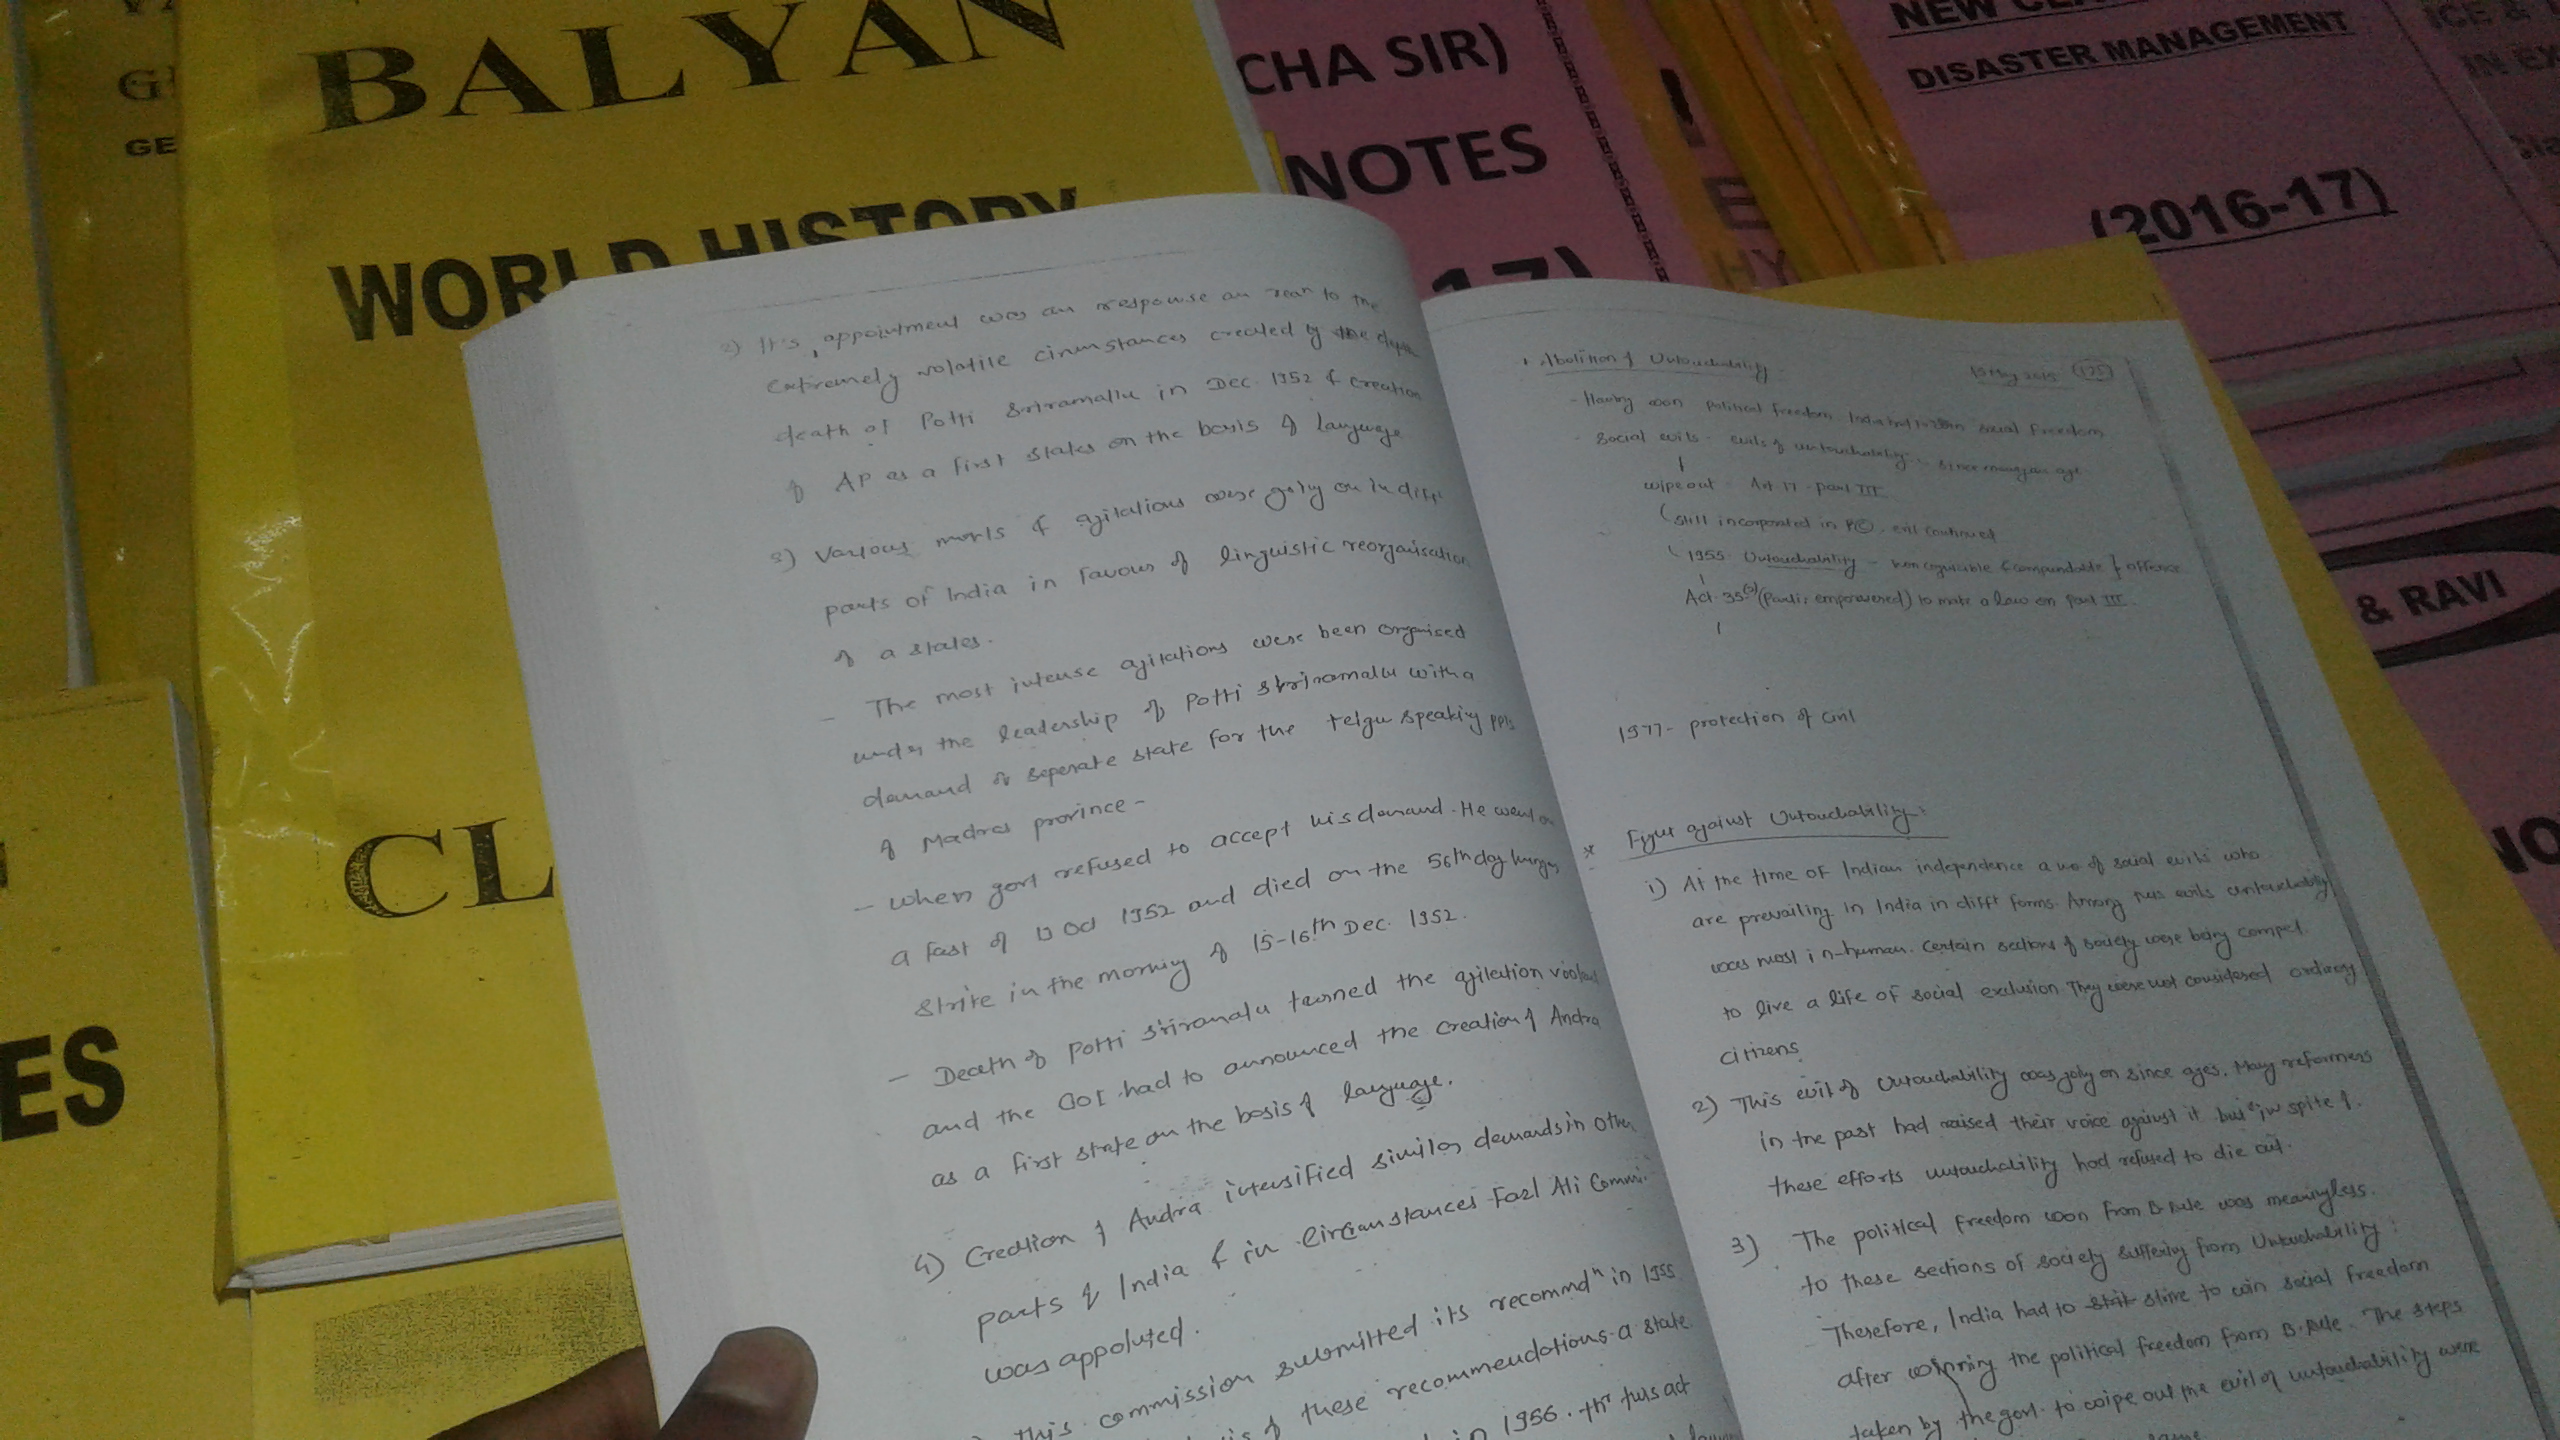 BALYAN
WORLD HISTORY
CL
GE
ES
CHA SIR)
NOTES
17)
DISASTER MANAGEMENT
(2016-17)
ICE &
IN EX
& RAVI
NO
2) It's appointment was an response to the
extremely volatile cirumstances created by the
death of Potti Sriramallu in Dec. 1952 & creation
of AP as a first states on the basis of language
3) Various mov'ts & agitations were going on in diff
parts of India in favour of linguistic reorganisation
of a states.
- The most intense agitations were been organised
under the leadership of Potti Sriramallu with a
demand of seperate state for the Telgu speaking ppls
of Madras province -
- When govt refused to accept his demand. He went on
a fast of 19 Oct 1952 and died on the 56th day hunger
strike in the morning of 15-16th Dec. 1952.
- Death of Potti Sriramalu turned the agitation violent
and the GOI had to announced the creation of Andra
as a first state on the basis of language.
4) Creation of Andra intensified similar demands in other
parts of India & in circumstances Fazl Ali Commi.
was appointed.
This commission submitted its recommdn in 1955
of these recommendations a state
in 1956. thr this act
* Abolition of Untouchability 19 May 2015 (175)
- Having won political freedom India had to win social freedom
- Social evils - evils of untouchability - since
wipeout Art 17 - part III
(still incorporated in evil continued
1955 Untouchability - non cognizable & compundable } offence
Act 35(a) (Parli; empowered) to make a law on Part III
1977 - protection of civil
* Fight against Untouchability:
1) At the time of Indian independence a no of social evils who
are prevailing in India in difft forms. Among this evils untouchability
was most in-human. Certain sections of society were being compel.
to live a life of social exclusion. They were not considered ordinary
citizens
2) This evil of Untouchability was going on since ages. Many reformers
in the past had raised their voice against it but in spite of.
these efforts untouchability had refused to die out.
3) The political freedom won from B.Rule was meaningless
to these sections of society suffering from Untouchability.
Therefore, India had to strive to win social freedom
after winning the political freedom from B.Rule. The steps
taken by the govt. to wipe out the evil of untouchability were